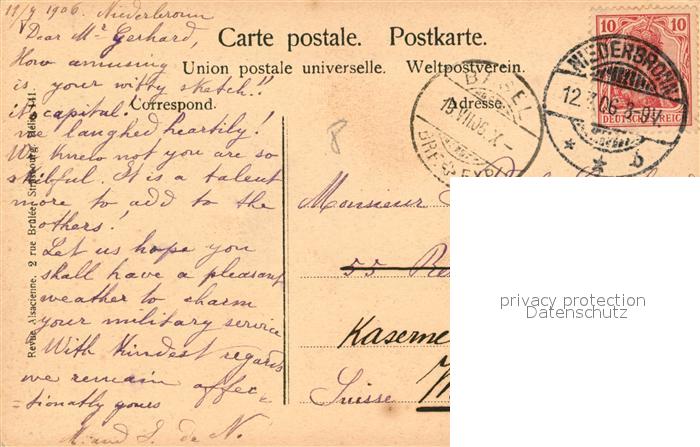 11/7 1906. Niederbronn
Dear Mr Gerhard,
How amusing
is your witty sketch!!
it's capital!
we laughed heartily!
We knew not you are so
skilful. It is a talent
more to add to the
others!
Let us hope you
shall have a pleasant
weather to charm
your military service
With Kindest regards
we remain affec=
=tionatly yours
M. and J. de N.
Carte postale. Postkarte.
Union postale universelle. Weltpostverein.
Correspond. Adresse.
Revue Alsacienne. 2 rue Brûlée, Strasbourg. Hélio 141.
8
BASEL
13.VII.06.X-
10 10
DEUTSCHES REICH
NIEDERBRONN
12.7.06.8-9V.
* * b
Monsieur
55
Kaserne
Suisse
privacy protection
Datenschutz